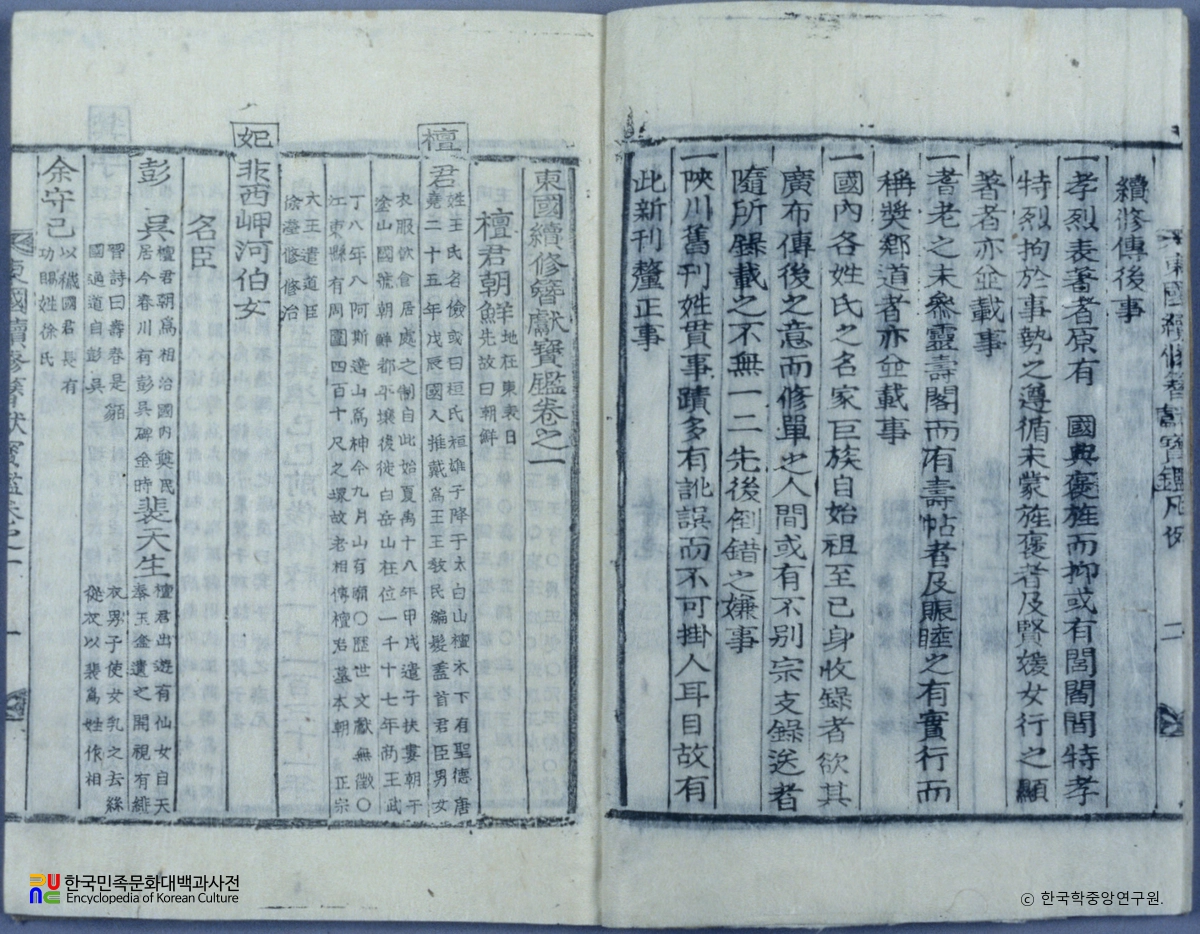 東國續修簪獻寶鑑凡例 二
續修傳後事
一孝烈表著者原有 國典褒旌而抑或有閭閻間特孝
特烈拘於事勢之遵循未蒙旌褒者及賢媛女行之顯
著者亦並載事
一耆老之未參靈壽閣而有壽帖者及賑睦之有實行而
稱奬鄕道者亦並載事
一國內各姓氏之名家巨族自始祖至己身收錄者欲其
廣布傳後之意而修單也人間或有不別宗支錄送者
隨所錄載之不無一二先後倒錯之嫌事
一陜川舊刊姓貫事蹟多有訛誤而不可掛人耳目故有
此新刊釐正事
東國續修簪獻寶鑑卷之一
檀君朝鮮 地在東表日
先故曰朝鮮
檀君 姓王氏名儉或曰桓氏桓雄子降于太白山檀木下有聖德唐
堯二十五年戊辰國人推戴爲王王敎民編髮盖首君臣男女
衣服飮食居處之制自此始夏禹十八年甲戌遣子扶婁朝于
塗山國號朝鮮都平壤後徙白岳山在位一千十七年商王武
丁八年八阿斯達山爲神今九月山有廟○歷世文獻無徵○
江東縣有周圍四百十尺之塚故老相傳檀君墓本朝 正宗
大王遣道臣
修治
妃 非西岬河伯女
名臣
彭吳 檀君朝爲相治國內奠民
居今春川有彭吳碑金時
習詩曰壽春是貊
國通道自彭吳
裴天生 檀君出遊有仙女自天
奉玉盒遺之開視有緋
衣男子使女乳之去緣
緋衣以裴爲姓作相
余守己 以穢國君長有
功賜姓徐氏
東國續修簪獻寶鑑卷之一 一
한국민족문화대백과사전
Encyclopedia of Korean Culture
© 한국학중앙연구원.